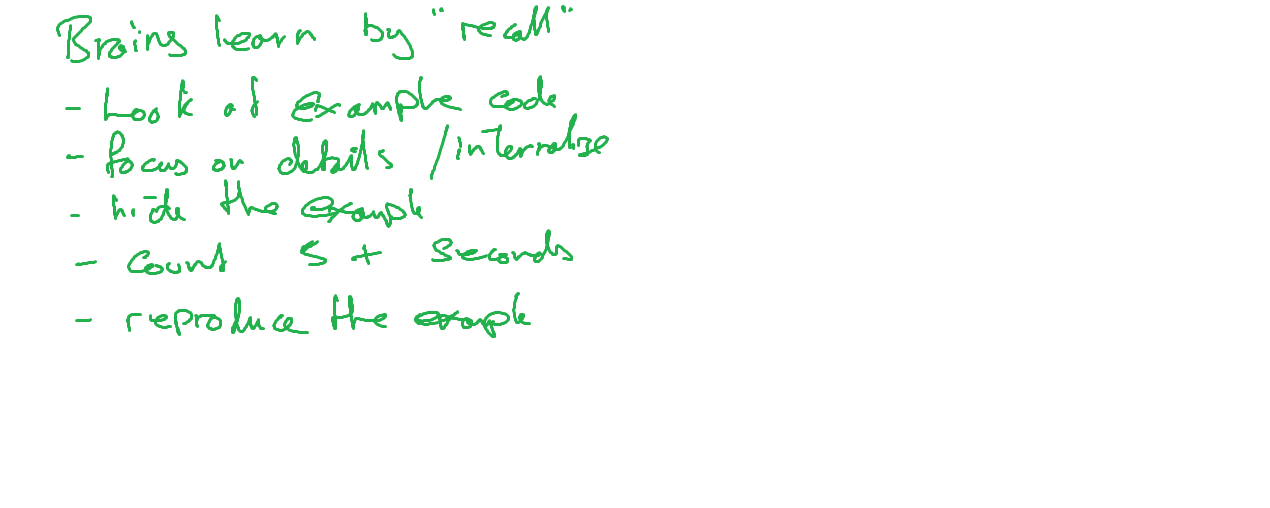 Brains learn by "recall"
- Look at example code
- focus on details / internalize
- hide the example
- count 5+ seconds
- reproduce the example